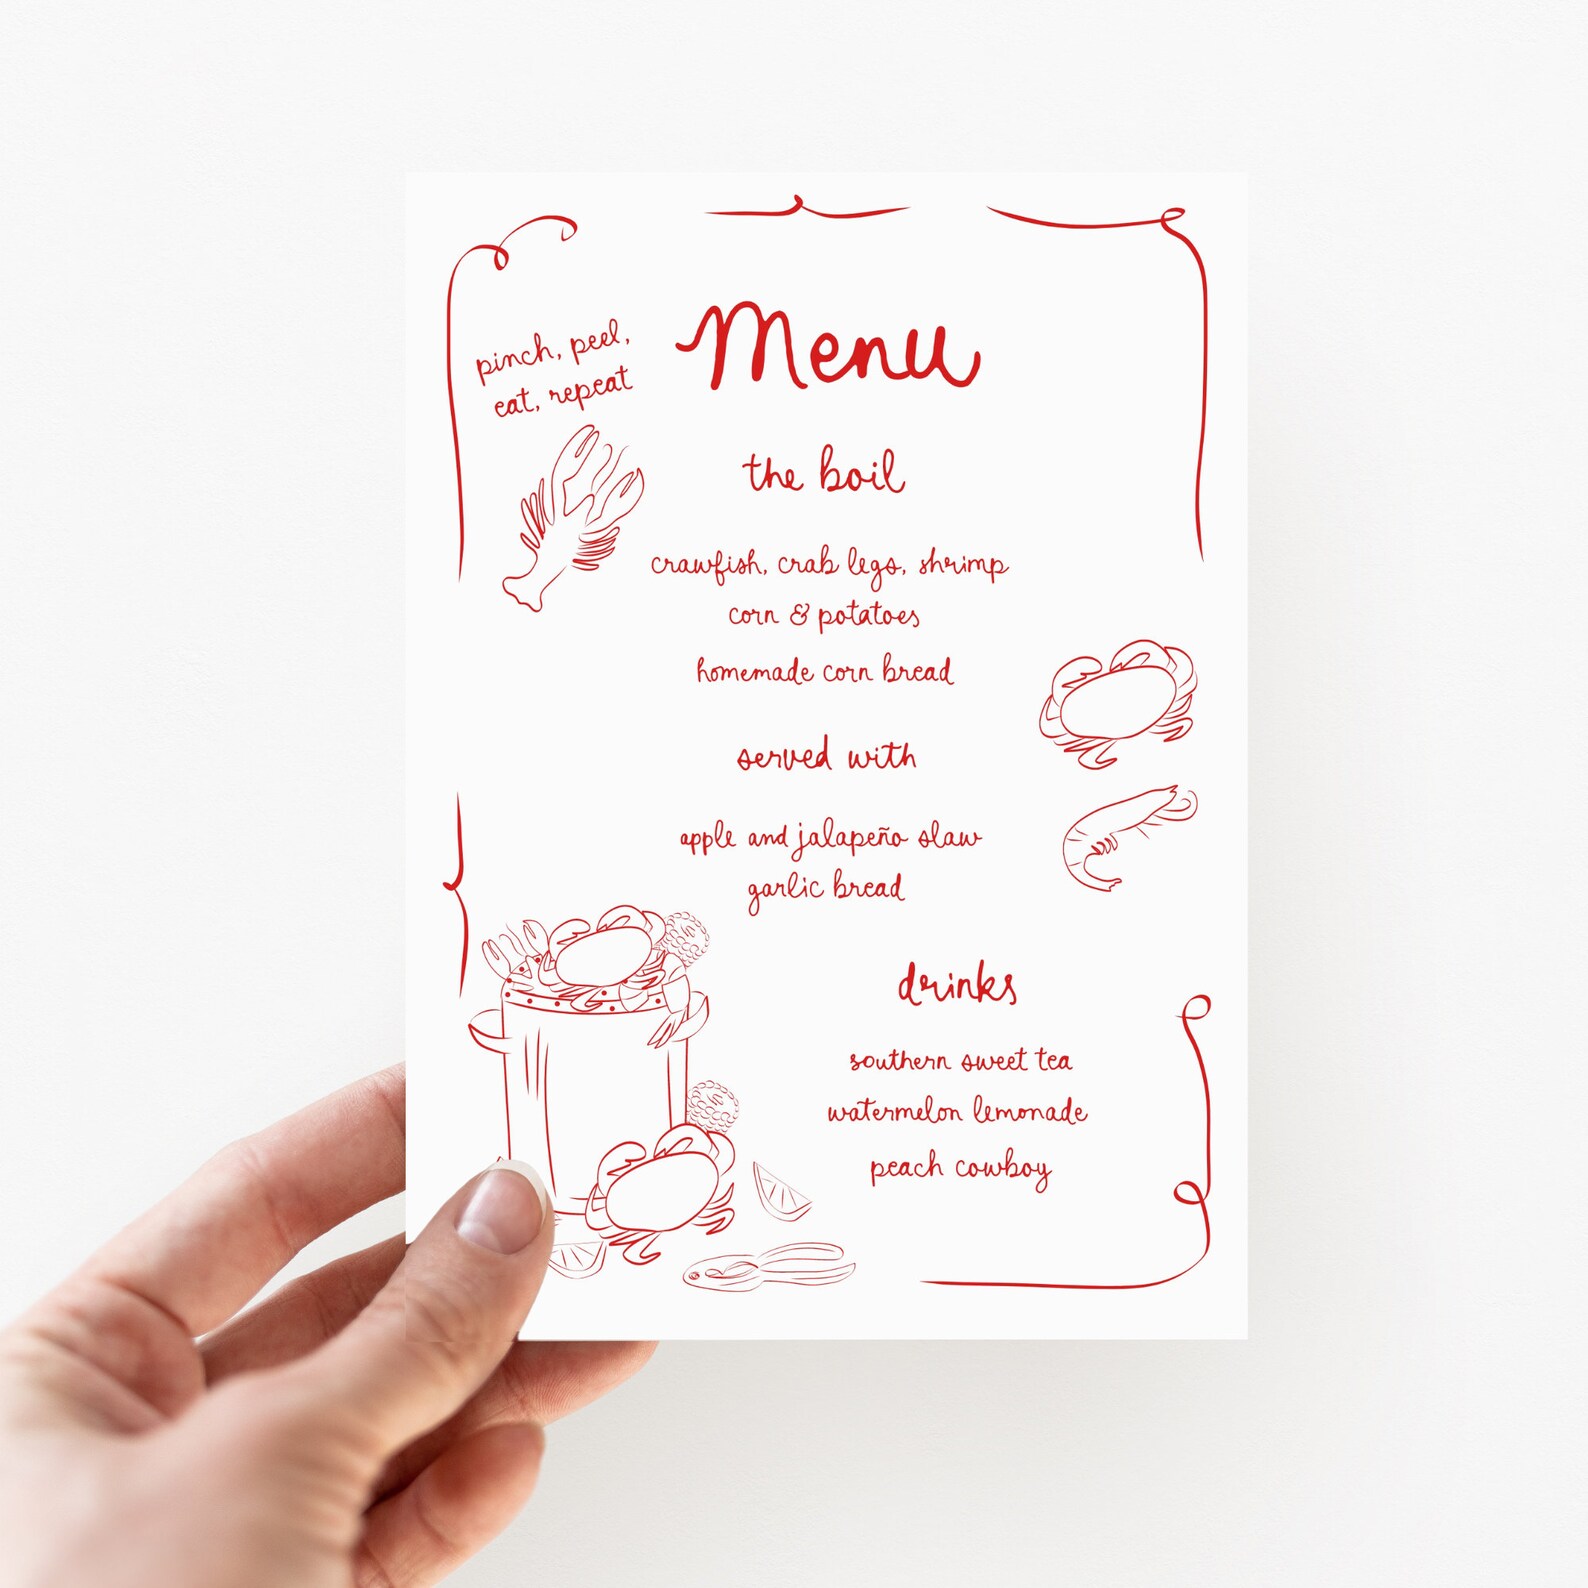 pinch, peel,
eat, repeat
Menu
the boil
crawfish, crab legs, shrimp
corn & potatoes
homemade corn bread
served with
apple and jalapeño slaw
garlic bread
drinks
southern sweet tea
watermelon lemonade
peach cowboy